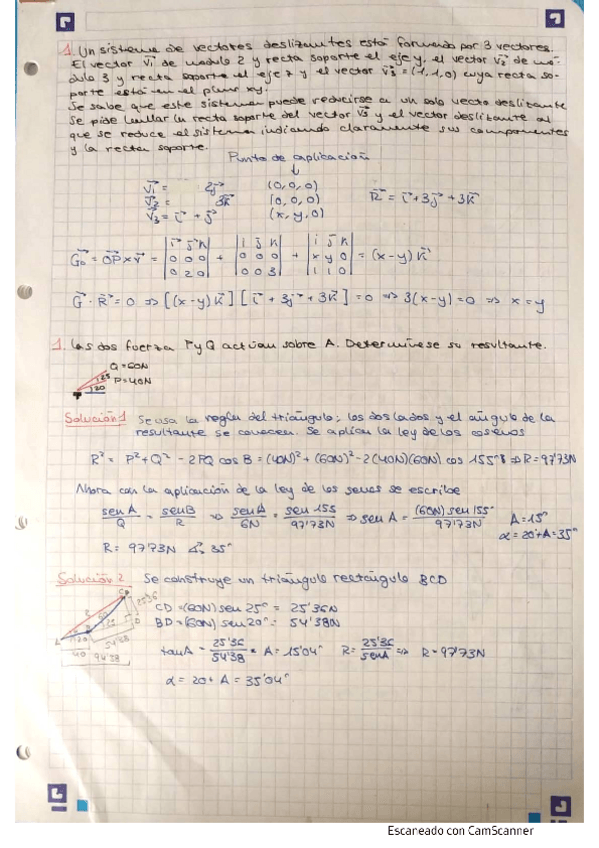 1. Un sistema de vectores deslizantes está formado por 3 vectores.
El vector v₁ de modulo 2 y recta soporte el eje y, el vector v₂ de mo-
dulo 3 y recta soporte el eje z y el vector v₃ = (1, 1, 0) cuya recta so-
porte está en el plano xy.
Se sabe que este sistema puede reducirse a un solo vector deslizante
Se pide hallar la recta soporte del vector v₃ y el vector deslizante al
que se reduce el sistema indicando claramente sus componentes
y la recta soporte.
Punto de aplicación
↓
v₁ = 2j (0,0,0)
v₂ = 3k (0,0,0) R = i + 3j + 3k
v₃ = i + j (x, y, 0)
G₀ = OP x v = |i j k; 0 0 0; 0 2 0| + |i j k; 0 0 0; 0 0 3| + |i j k; x y 0; 1 1 0| = (x-y) k
G · R = 0 ⇒ [(x-y) k] [i + 3j + 3k] = 0 ⇒ 3(x-y) = 0 ⇒ x = y
1. Las dos fuerza P y Q actúan sobre A. Determínese su resultante.
Q = 60N
25
P = 40N
20
Solución 1 Se usa la regla del triángulo; los dos lados y el ángulo de la
resultante se conocen. Se aplica la ley de los cosenos
R² = P² + Q² - 2PQ cos B = (40N)² + (60N)² - 2(40N)(60N) cos 155° ⇒ R = 97'73N
Ahora con la aplicación de la ley de los senos se escribe
sen A / Q = sen B / R ⇒ sen A / 6N = sen 155 / 97'73N ⇒ sen A = (60N) sen 155° / 97'73N A = 15°
α = 20 + A = 35°
R = 97'73N ∡ 35°
Solución 2 Se construye un triángulo rectángulo BCD
CD = (60N) sen 25° = 25'36N
BD = (60N) sen 20° = 54'38N
tan A = 25'36 / 54'38 = A = 15'04° R = 25'36 / sen A ⇒ R = 97'73N
α = 20 + A = 35'04°
25'36
54'38
40
94'38
Escaneado con CamScanner